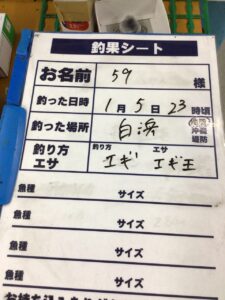 釣果シート
お名前 59 様
釣った日時 1月5日23時頃
釣った場所 白浜 地磯 沖磯 堤防
釣り方 エサ 釣り方 エギ エサ エギ王
魚種 サイズ
魚種 サイズ
魚種 サイズ
魚種 サイズ